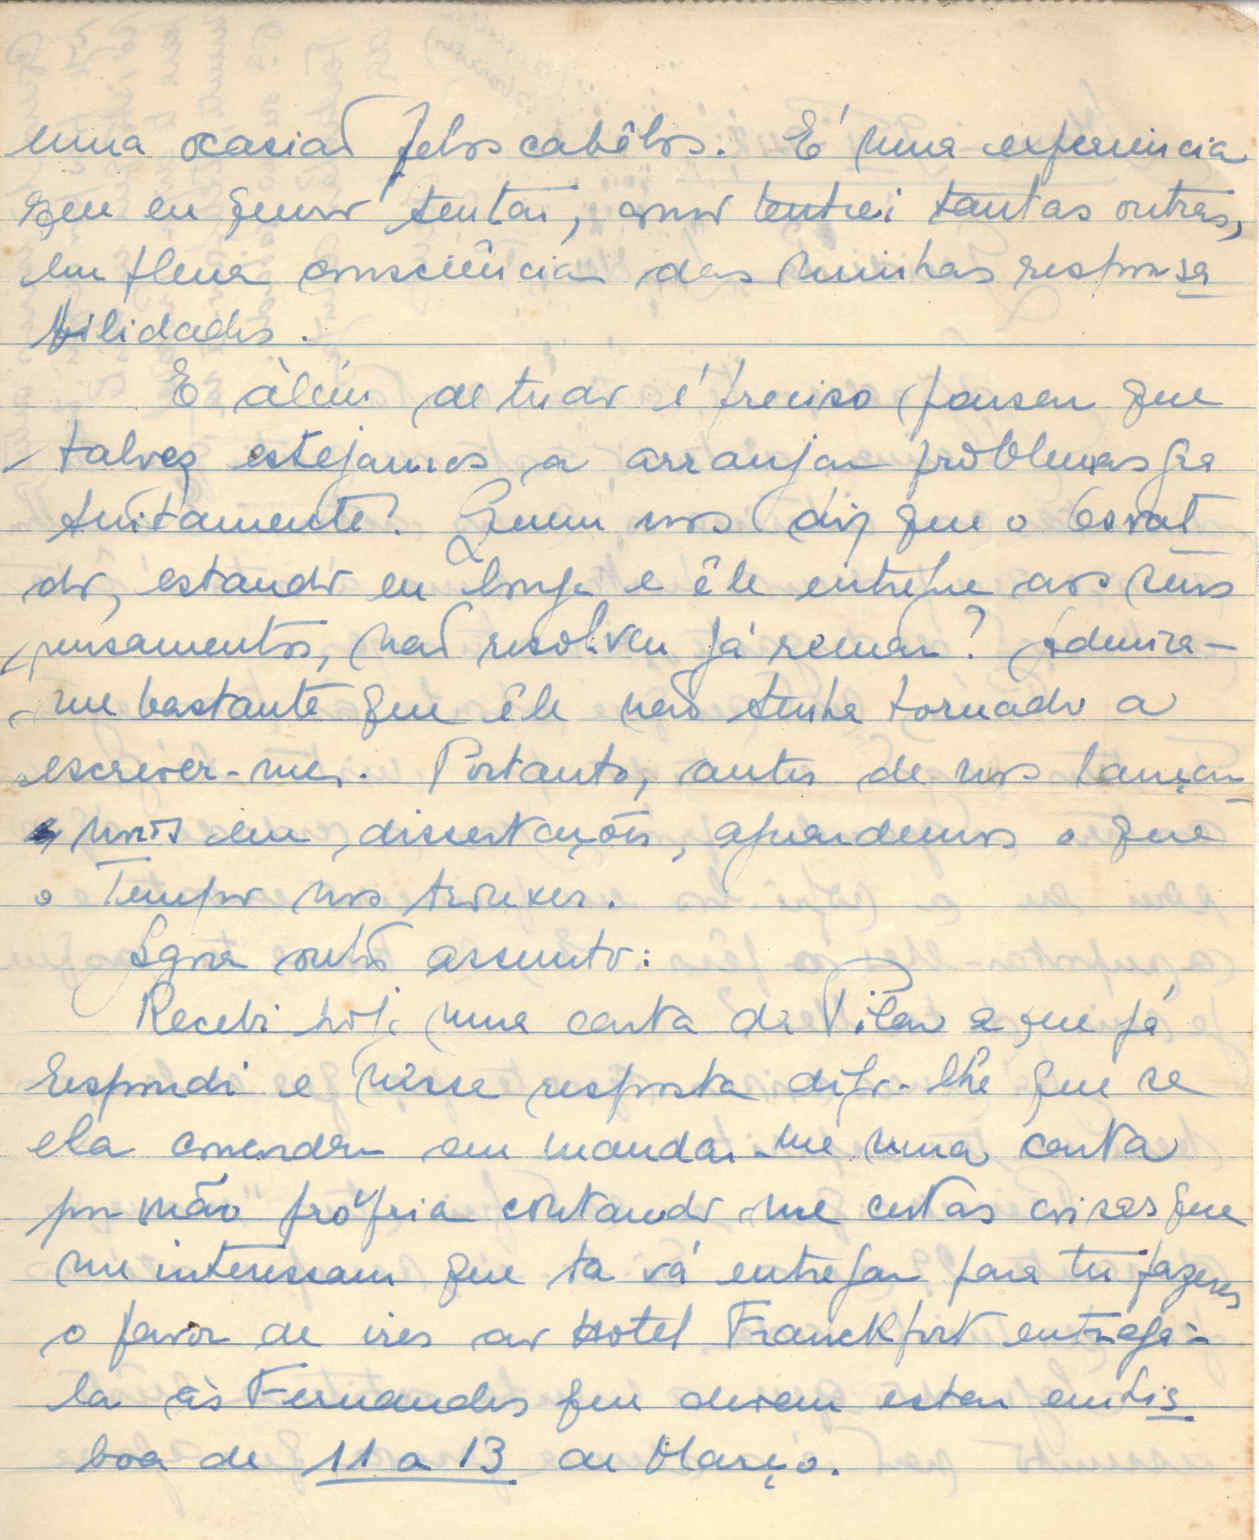 uma ocasião pelos cabêlos. É uma experiencia
que eu quero tentar, como tentei tantas outras,
em plena consciência das minhas responsa
bilidades.
E àlém de tudo é preciso pensar que
talvez estejamos a arranjar problemas gra
tuitamente! Quem nos diz que o
do, estando eu longe e êle entregue aos seus
pensamentos, não resolveu já recuar? Admira-
me bastante que êle não tenha tornado a
escrever-me. Portanto, antes de nos lançar-
mos em dissertações, aguardemos o que
o Tempo nos trouxer.
Agora outro assunto:
Recebi hoje uma carta da Pilar a que já
respondi e nessa resposta digo-lhe que se
ela concordar em mandar-me uma carta
por mão própria contando-me certas coisas que
me interessam que ta vá entregar para tu fazeres
o favor de ires ao Hotel Franckfort entregá-
la às Fernandes que devem estar em Lis
boa de 11 a 13 de Março.